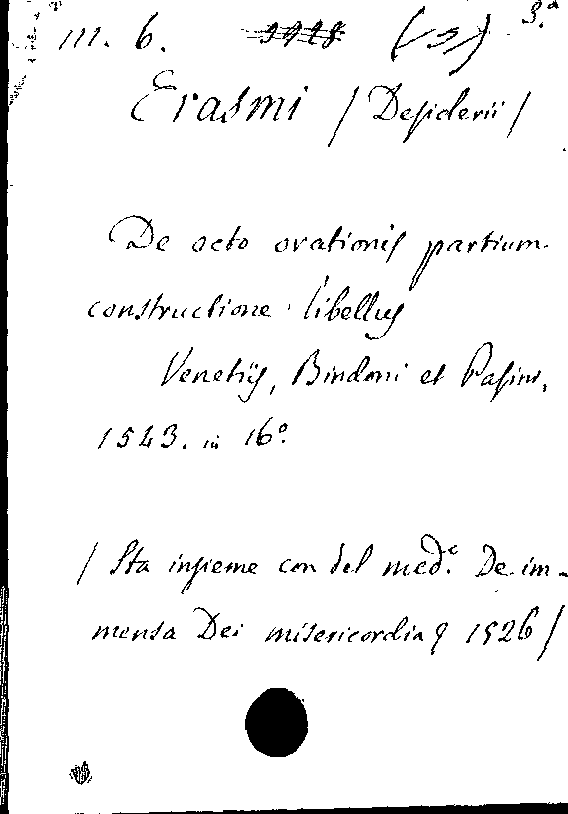 III. 6. 3928 (3) 3.ª
Erasmi / Desiderii /
De octo orationis partium
constructione libellus
Venetijs, Bindoni et Pasini,
1543. in 16º.
/ Sta insieme con del med.º De im-
mensa Dei misericordia 1526 /